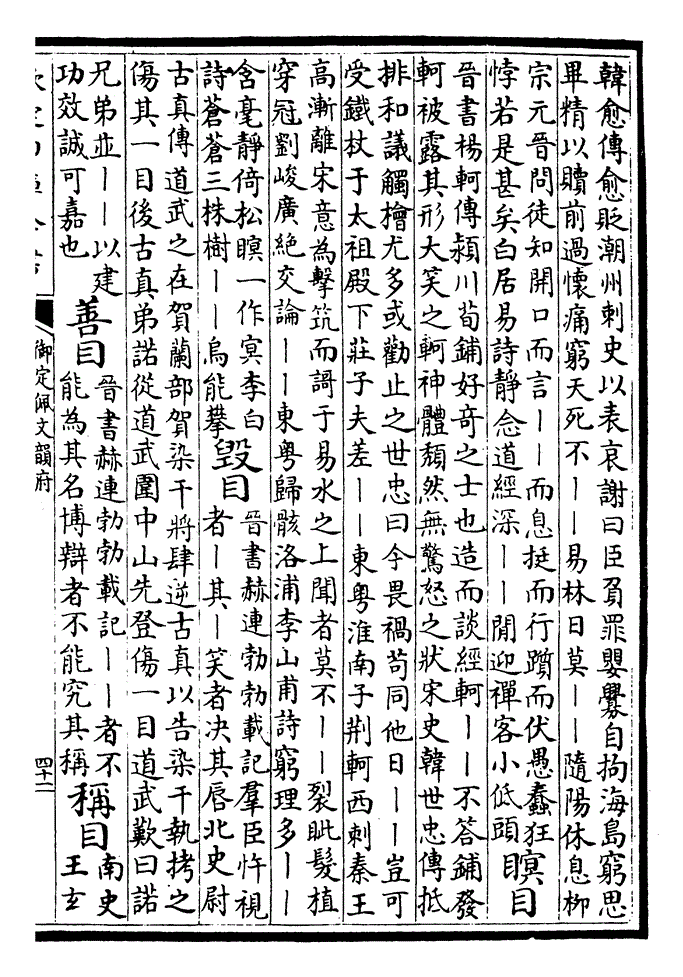 韓愈傳愈貶潮州刺史以表哀謝曰臣負罪嬰釁自拘海島窮思
畢精以贖前過懷痛窮天死不丨丨易林日莫丨丨隨陽休息栁
宗元晉問徒知開口而言丨丨而息挺而行躓而伏愚蠢狂
悖若是甚矣白居易詩靜念道經深丨丨閒迎禪客小低頭
瞑目
晉書楊軻傳潁川荀鋪好奇之士也造而談經軻丨丨不答鋪發
軻被露其形大笑之軻神體頽然無驚怒之狀宋史韓世忠傳抵
排和議觸檜尤多或勸止之世忠曰今畏禍苟同他日丨丨豈可
受鐵杖于太祖殿下莊子夫差丨丨東粤淮南子荆軻西刺秦王
高漸離宋意為擊筑而謌于易水之上聞者莫不丨丨裂眦髮植
穿冠劉峻廣絶交論丨丨東粤歸骸洛浦李山甫詩窮理多丨丨
含毫靜倚松瞑一作冥李白
詩蒼蒼三株樹丨丨焉能攀
毀目
晉書赫連勃勃載記羣臣忤視
者丨其丨笑者决其唇北史尉
古真傳道武之在賀蘭部賀染干將肆逆古真以告染干執拷之
傷其一目後古真弟諾從道武圍中山先登傷一目道武歎曰諾
兄弟並丨丨以建
功效誠可嘉也
善目
晉書赫連勃勃載記丨丨者不
能為其名博辯者不能究其稱
稱目
南史
王玄
欽定四庫全書
御定佩文韻府
四十二